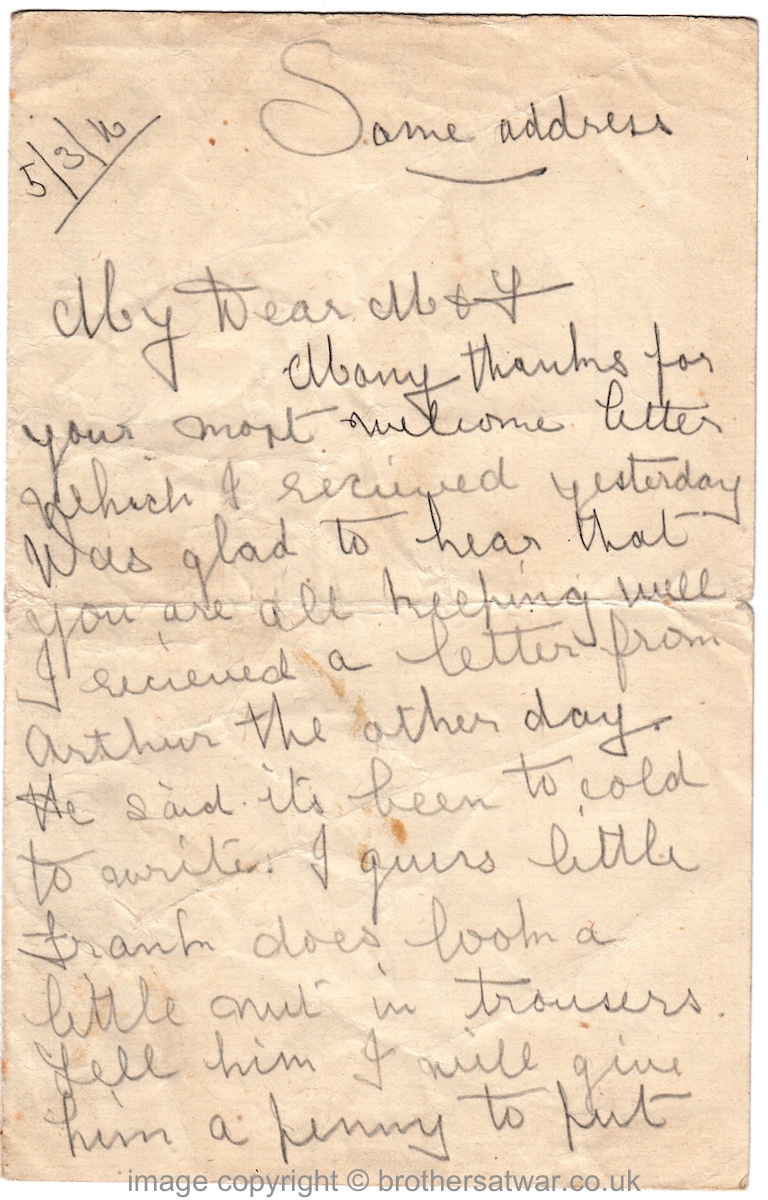 Same address
5/3/
My Dear M & F
Many thanks for
your most welcome letter
which I recieved yesterday
Was glad to hear that
you are all keeping well
I recieved a letter from
Arthur the other day.
He said its been to cold
to write. I guess little
Frank does look a
little nut in trousers.
Tell him I will give
him a penny to put
image copyright © brothersatwar.co.uk